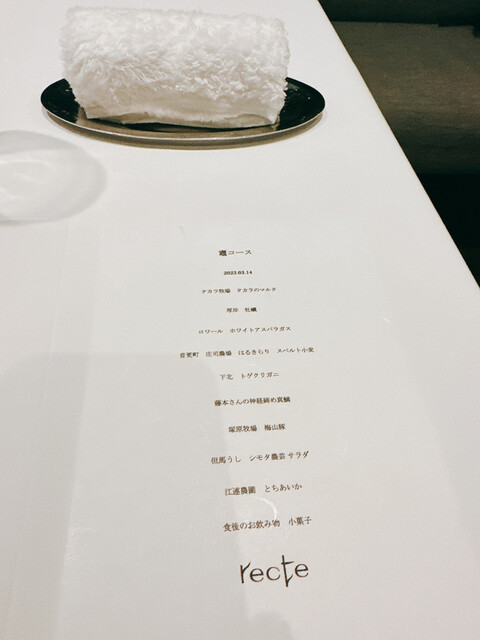 竈コース
2023.03.14
タカラ牧場 タカラのマルク
厚岸 牡蠣
ロワール ホワイトアスパラガス
音更町 庄司農場 はるきらり スペルト小麦
下北 トゲクリガニ
藤本さんの神経締め真鯛
塚原牧場 梅山豚
但馬うし シモタ農芸サラダ
江連農園 とちあいか
食後のお飲み物 小菓子
recte